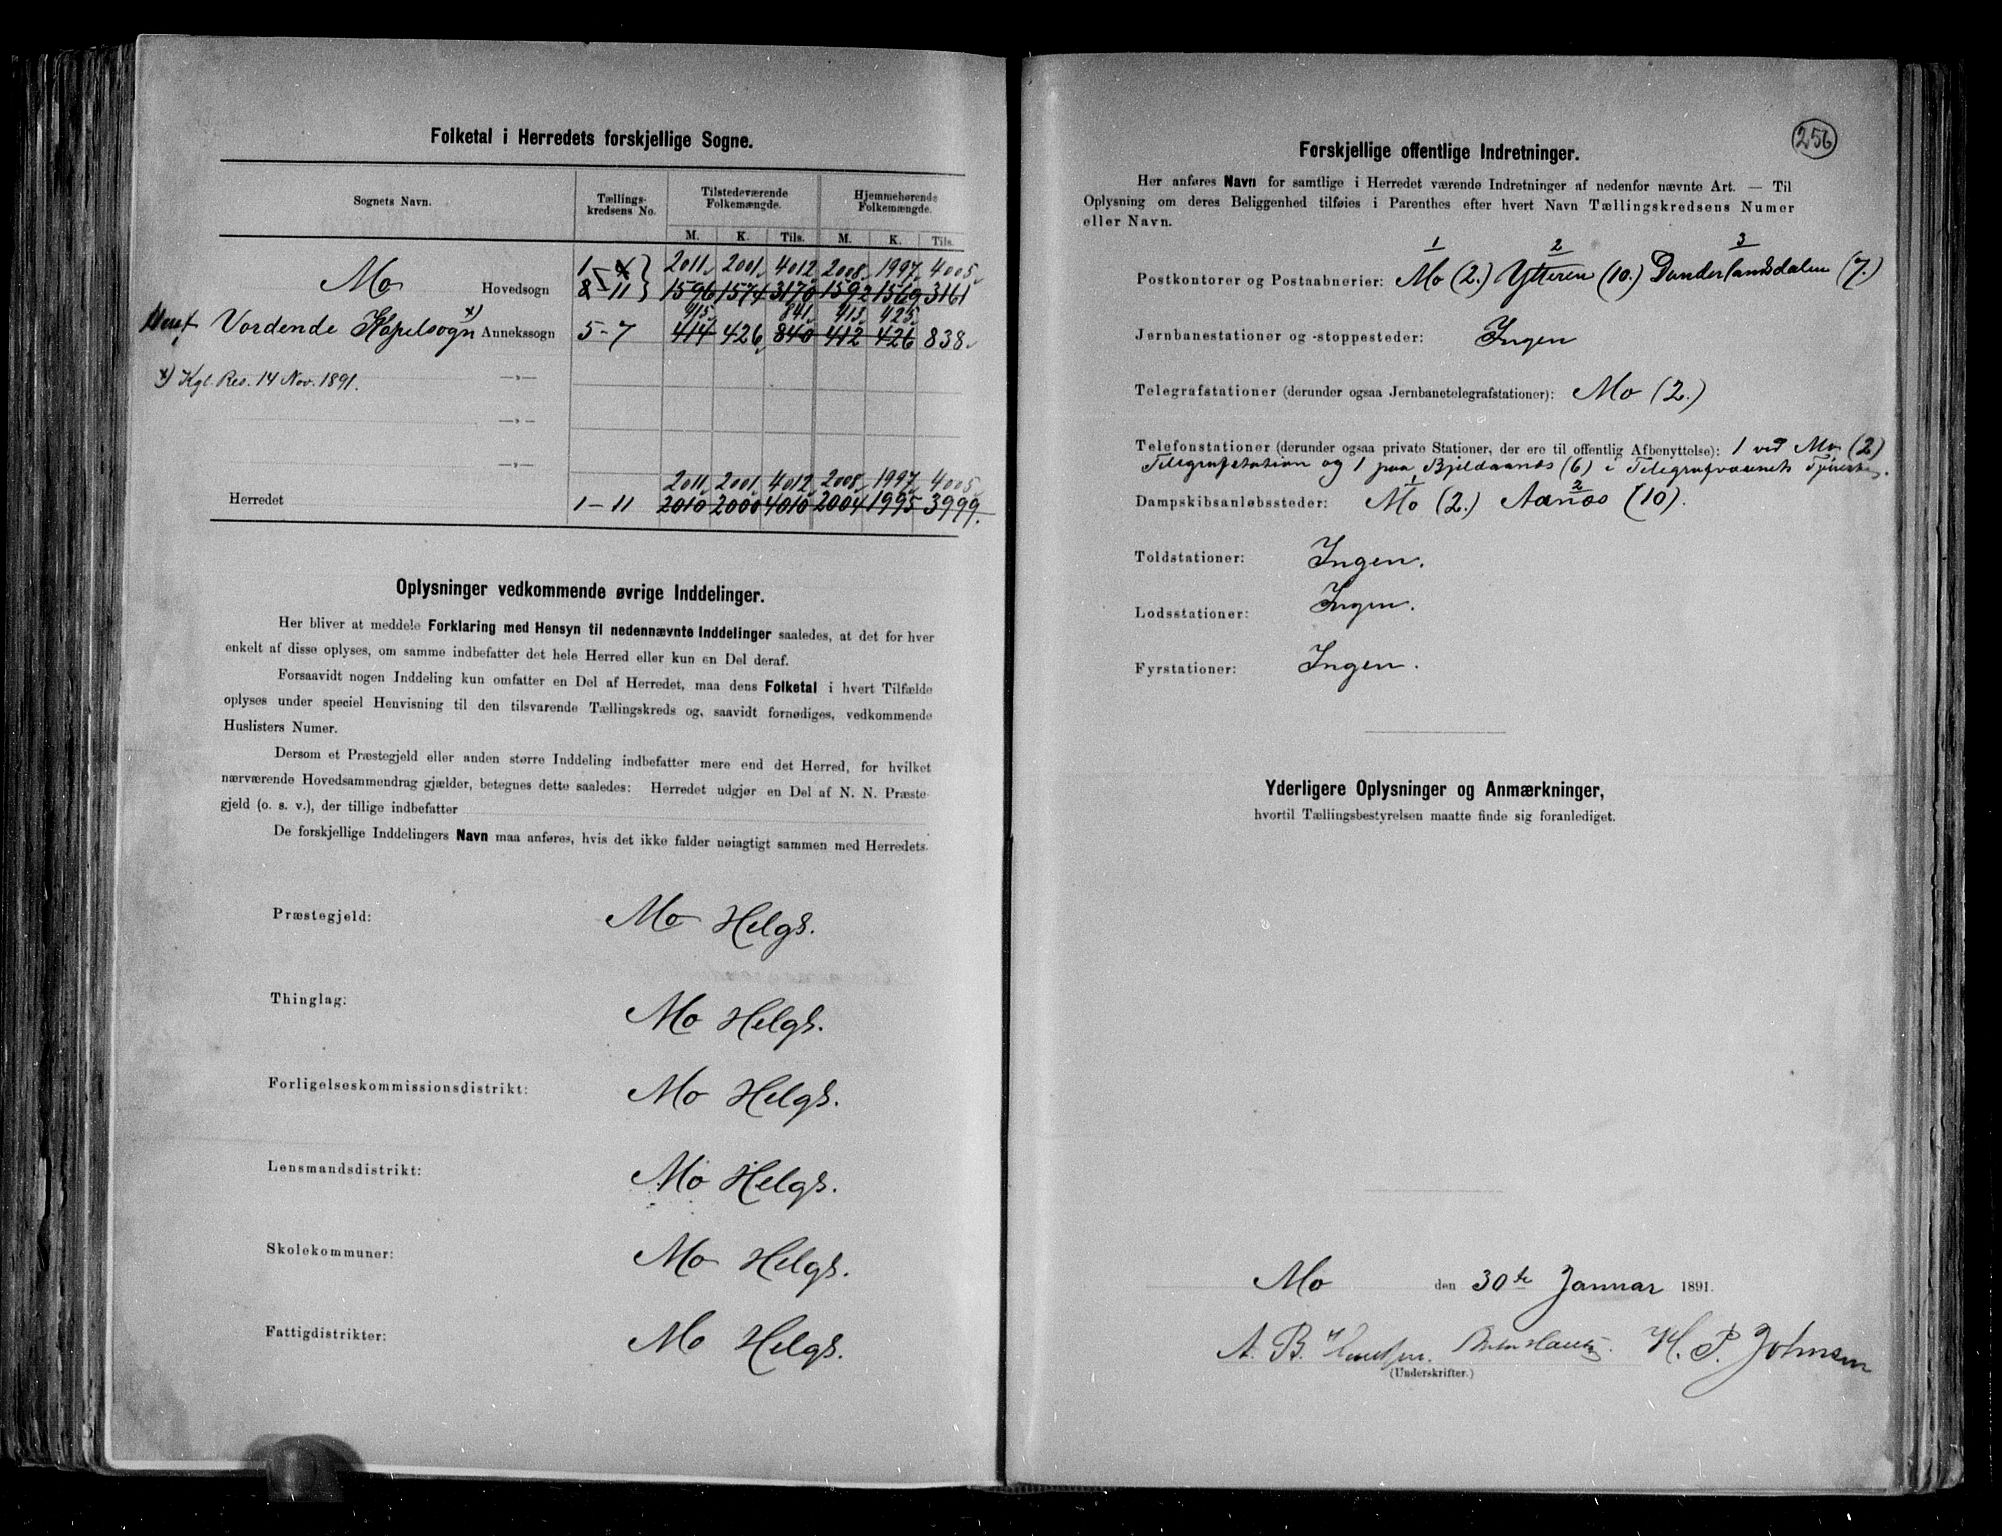 Folketal i Herredets forskjellige Sogne.
Sognets Navn. Tællings-kredsens No. Tilstedeværende Folkemængde. Hjemmehørende Folkemængde.
M. K. Tils. M. K. Tils.
2011 2001 4012 2008 1997 4005
Mo Hovedsogn 1 - 4 8 - 11 1596 1574 3170 1592 1569 3161
415 841 413 425
Vordende Kapelsogn x) Annekssogn 5 - 7 414 426 840 412 426 838
x) Kgl. Res. 14 Nov. 1891. —»—
—»—
—»—
2011 2001 4012 2008 1997 4005
Herredet 1 - 11 2010 2000 4010 2004 1995 3999.
Oplysninger vedkommende øvrige Inddelinger.
Her bliver at meddele Forklaring med Hensyn til nedennævnte Inddelinger saaledes, at det for hver
enkelt af disse oplyses, om samme indbefatter det hele Herred eller kun en Del deraf.
Forsaavidt nogen Inddeling kun omfatter en Del af Herredet, maa dens Folketal i hvert Tilfælde
oplyses under speciel Henvisning til den tilsvarende Tællingskreds og, saavidt fornødiges, vedkommende
Huslisters Numer.
Dersom et Præstegjeld eller anden større Inddeling indbefatter mere end det Herred, for hvilket
nærværende Hovedsammendrag gjælder, betegnes dette saaledes: Herredet udgjør en Del af N. N. Præste-
gjeld (o. s. v.), der tillige indbefatter
De forskjellige Inddelingers Navn maa anføres, hvis det ikke falder nøiagtigt sammen med Herredets.
Præstegjeld: Mo Helgs.
Thinglag: Mo Helgs.
Forligelseskommissionsdistrikt: Mo Helgs.
Lensmandsdistrikt: Mo Helgs.
Skolekommuner: Mo Helgs.
Fattigdistrikter: Mo Helgs.
256
Forskjellige offentlige Indretninger.
Her anføres Navn for samtlige i Herredet værende Indretninger af nedenfor nævnte Art. — Til
Oplysning om deres Beliggenhed tilføies i Parenthes efter hvert Navn Tællingskredsens Numer
eller Navn.
1 2 3
Postkontorer og Postaabnerier: Mo (2.) Ytteren (10.) Dunderlandsdalen (7.)
Jernbanestationer og -stoppesteder: Ingen
Telegrafstationer (derunder ogsaa Jernbanetelegrafstationer): Mo (2.)
Telefonstationer (derunder ogsaa private Stationer, der ere til offentlig Afbenyttelse): 1 ved Mo (2)
Telegrafstation og 1 paa Bjeldaanæs (6) i Telegrafvæsenets
1 2
Dampskibsanløbssteder: Mo (2.) Aanæs (10).
Toldstationer: Ingen.
Lodsstationer: Ingen.
Fyrstationer: Ingen.
Yderligere Oplysninger og Anmærkninger,
hvortil Tællingsbestyrelsen maatte finde sig foranlediget.
Mo den 30te Januar 1891.
A. B. H. P. Johnsen
(Underskrifter.)